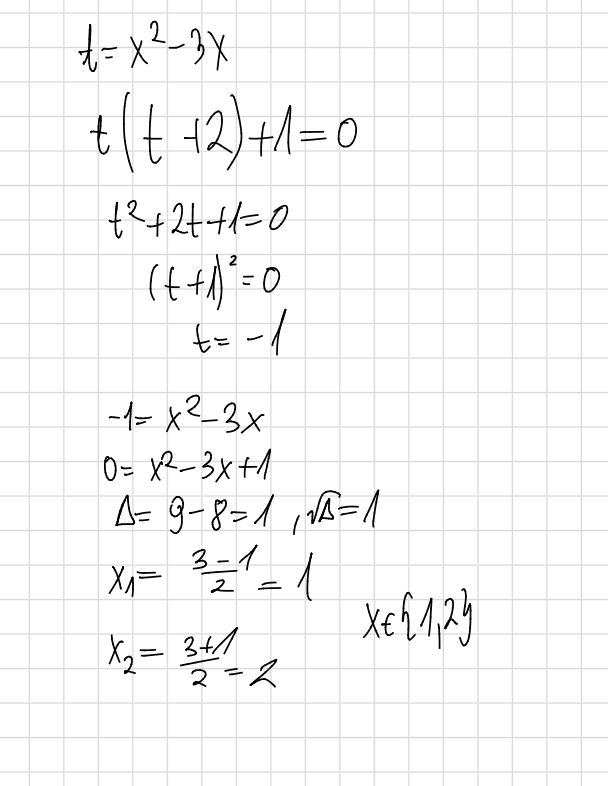 t = x² - 3x
t(t + 2) + 1 = 0
t² + 2t + 1 = 0
(t + 1)² = 0
t = -1
-1 = x² - 3x
0 = x² - 3x + 1
Δ = 9 - 8 = 1, √Δ = 1
x₁ = (3 - 1)/2 = 1
x₂ = (3 + 1)/2 = 2
x ∈ {1, 2}